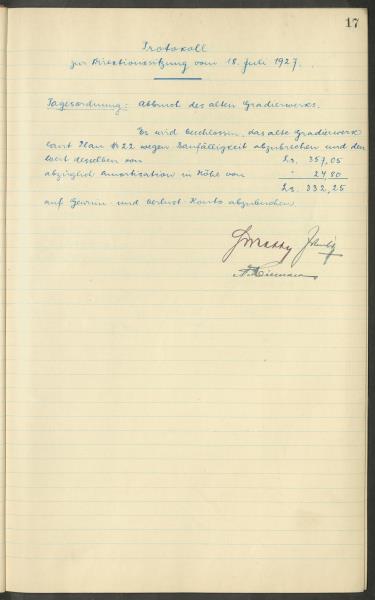 17
Protokoll
zur Direktionssitzung vom 18. Juli 1927.
Tagesordnung: Abbruch des alten Gradierwerks.
Es wird beschlossen, das alte Gradierwerk
laut Plan № 22 wegen Baufälligkeit abzubrechen und den
Wert desselben von Ls. 357,05
abzüglich Amortisation in Höhe von " 24,80
Ls. 332,25
auf Gewinn- und Verlust-Konto abzubuchen.